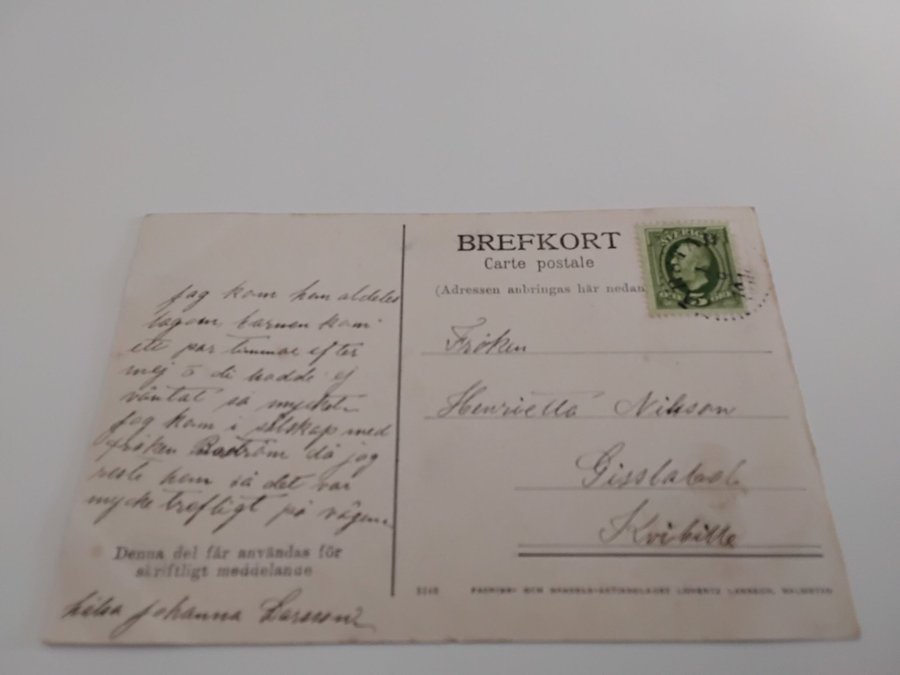 BREFKORT
Carte postale
(Adressen anbringas här nedan
SVERIGE
5
Jag kom hem aldeles
lagom, barnen kom
ett par timmar efter
mej o di hadde ej
väntat så mycket
Jag kom i sälskap med
fröken Boström då jag
reste hem så det var
mycke trefligt på vägen
Denna del får användas för
skriftligt meddelande
Johanna Larsson
Fröken
Henrietta Nilsson
Kvibille